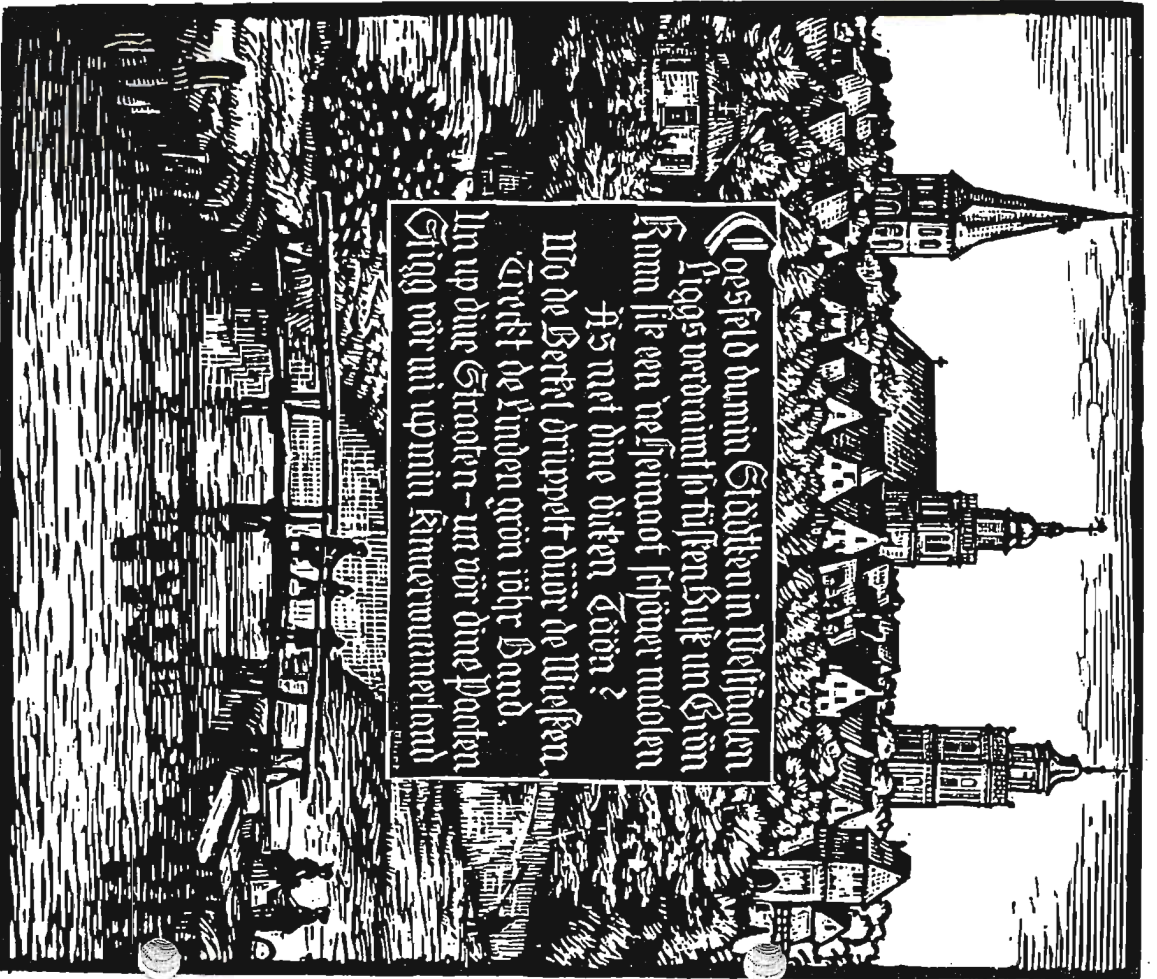 Coesfeld du min Städtken in Westfaolen
Liggs verdraimt so tüsken Busk un Grön
Kann sik een 'ne Heimaot schöner maolen
As met dine dicken Täön?
Wo de Berkel drüppelt düör de Wiesken,
Treckt de Linden grön iöhr Band.
Un up dine Straoten- un vör dine Paoten
Stigg vör mi up min Kinnerwunnerland